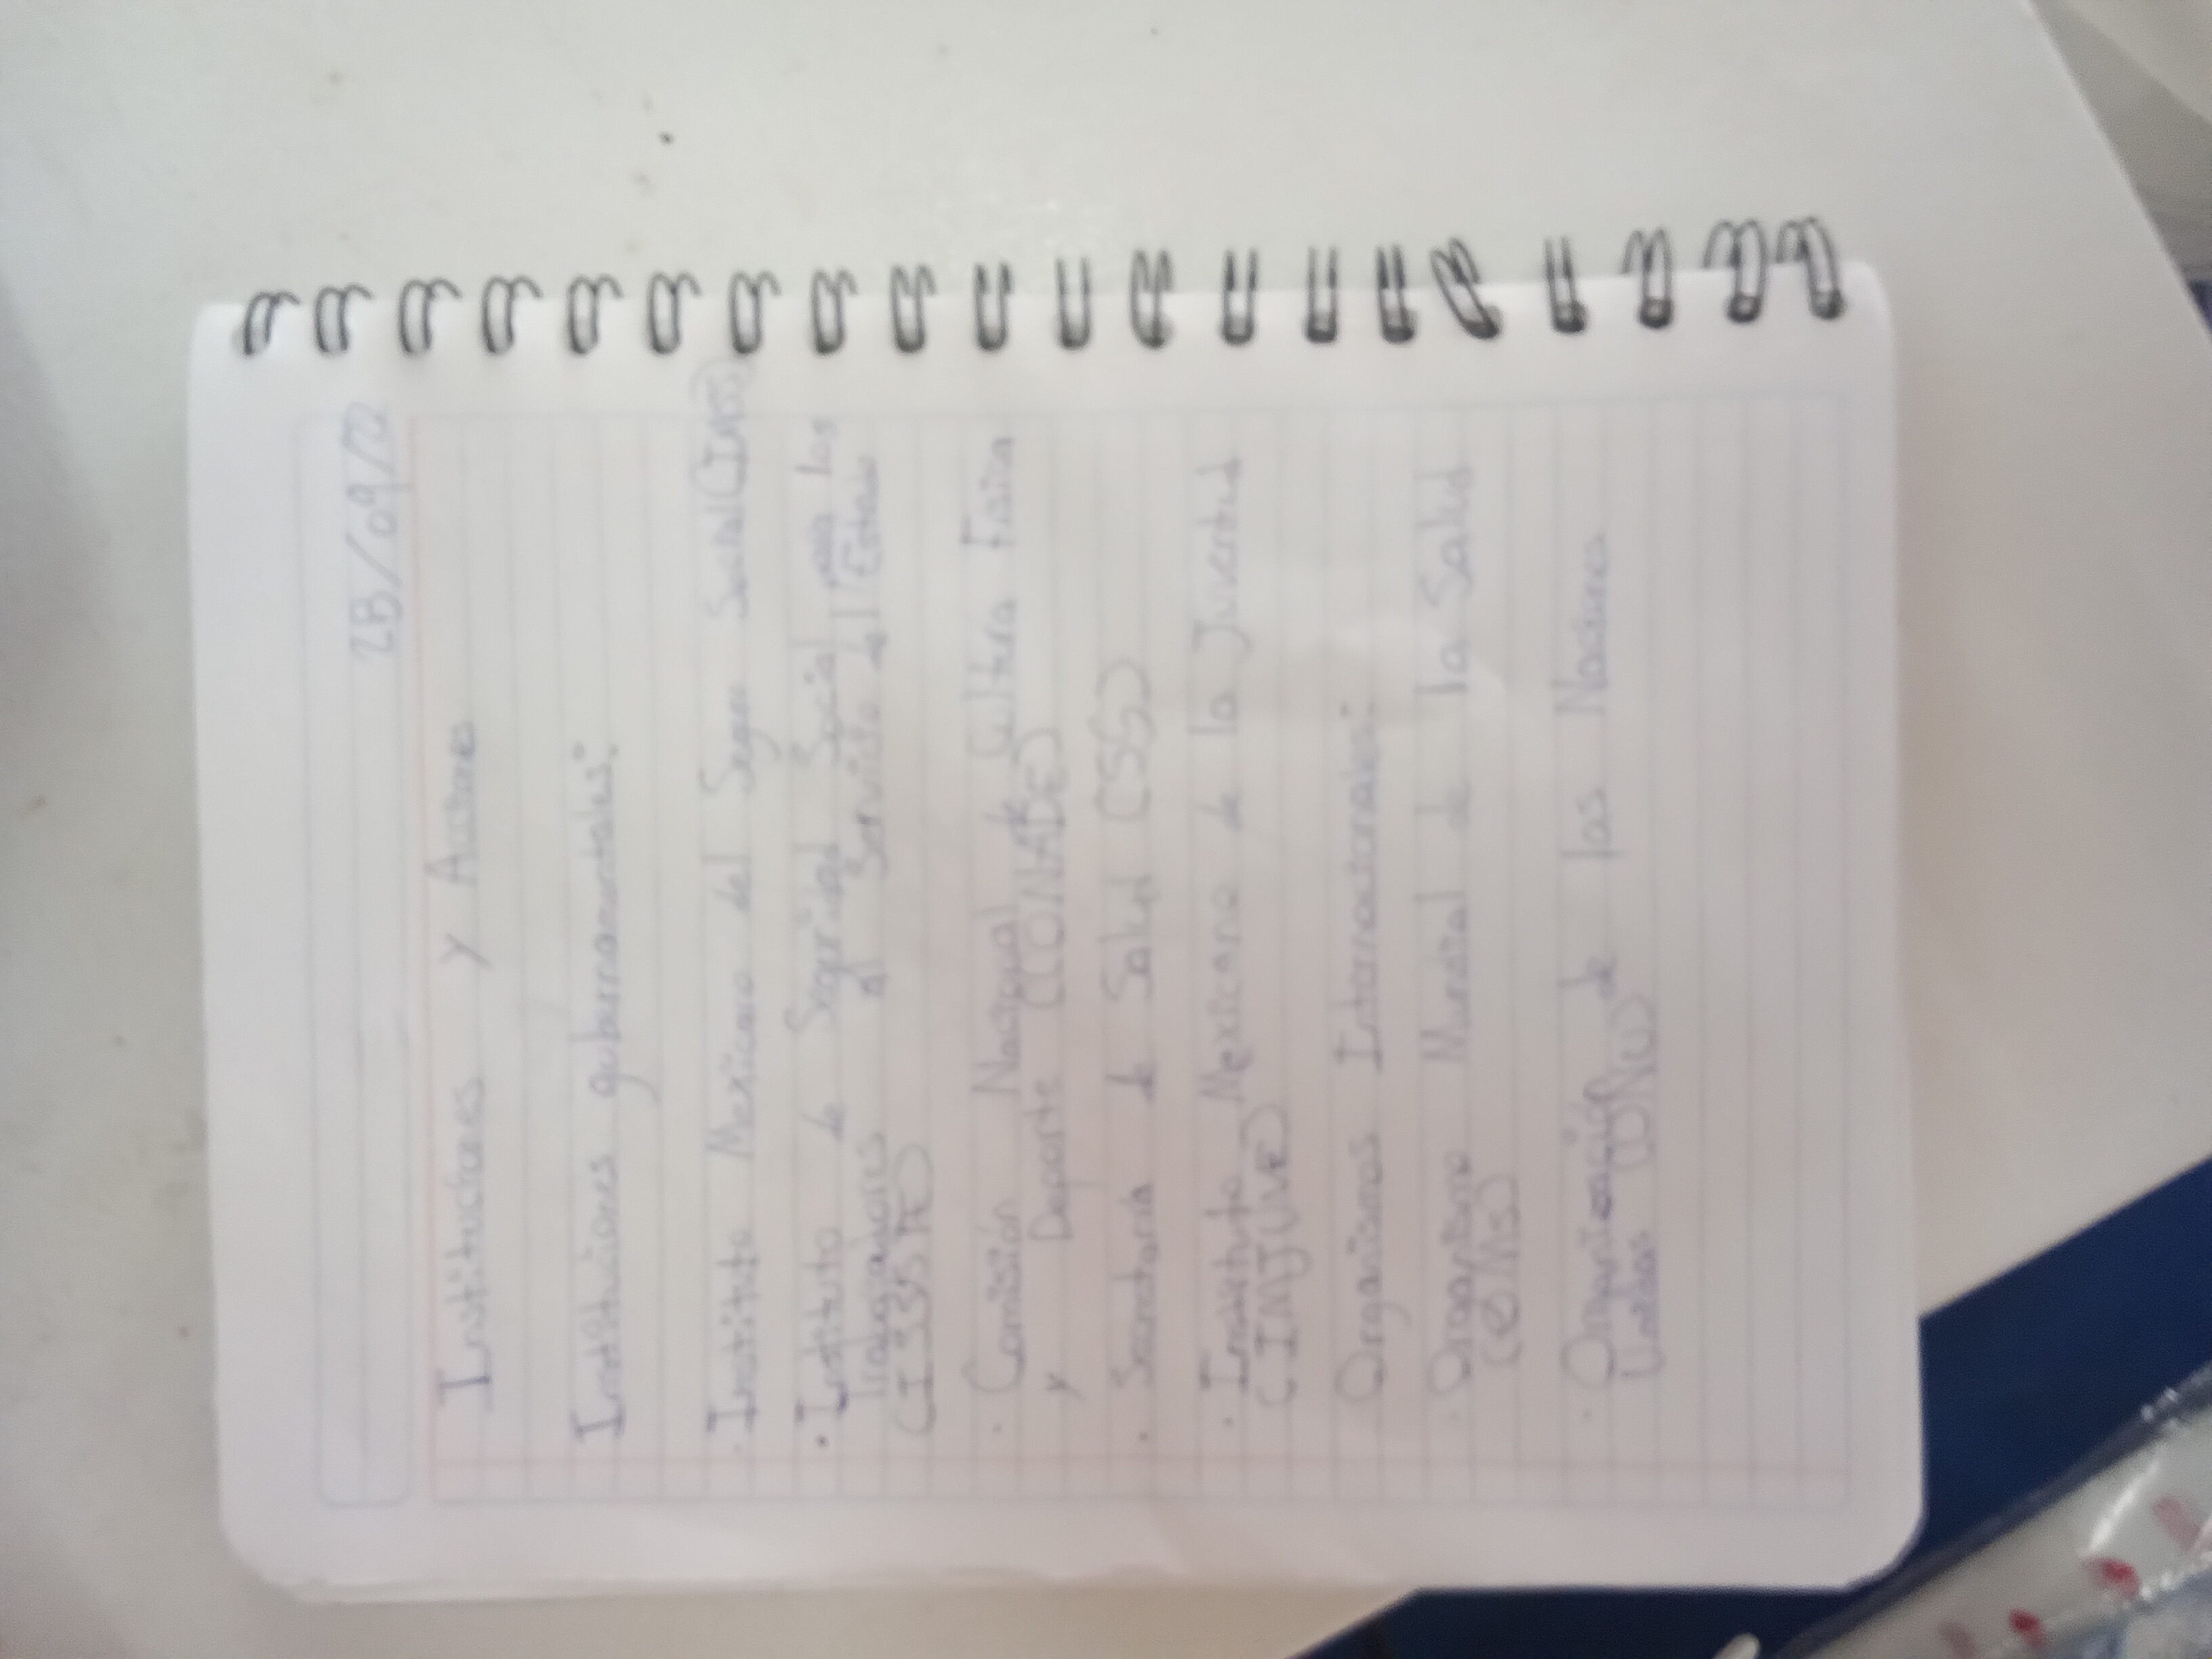 28/09/22
Instituciones y Acciones
Instituciones gubernamentales:
· Instituto Mexicano del Seguro Social (IMSS)
· Instituto de Seguridad Social para los
Trabajadores al Servicio del Estado
(ISSSTE)
· Comisión Nacional de Cultura Física
y Deporte (CONADE)
· Secretaría de Salud (SS)
· Instituto Mexicano de la Juventud
(IMJUVE)
Organismos Internacionales:
· Organismo Mundial de la Salud
(OMS)
· Organización de las Naciones
Unidas (ONU)